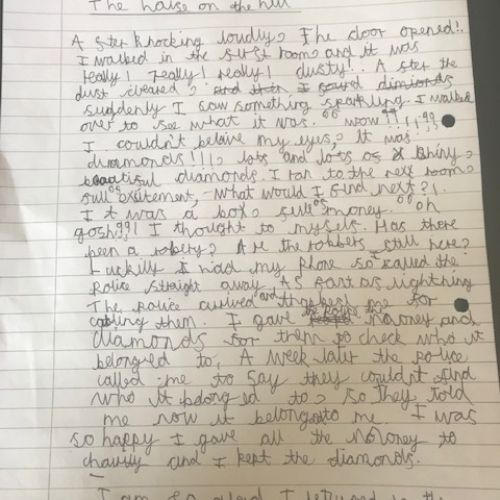 The house on the hill
A ster knocking loudly, The door opened!.
I walked in the surst room, and it was
really! really! really! dusty!. A ster the
dust cleared, and then I sound dimionds
suddenly I saw something sparkling. I walked
over to see what it was. "wow"!!!!
I couldn't beleive my eyes, It was
diamonds!!!!, lots and lots os shiny,
beautisul diamonds. I ran to the next room,
sull os excitement, what would I sind next?!.
It was a box, sull os money. "oh
gosh"! I thought to myself. Has there
been a robery? Are the robbers still here?
Luckily I had my phone so I called the
police straight away. AS fast as lightning
The police arived and thanked me for
calling them. I gave the police money and
diamonds for them to check who it
belonged to. A week later the police
called me to say they couldnt sind
who it belonged to, so they told
me now it belongs to me. I was
so happy I gave all the money to
charity and I kept the diamonds.
I am so glad I